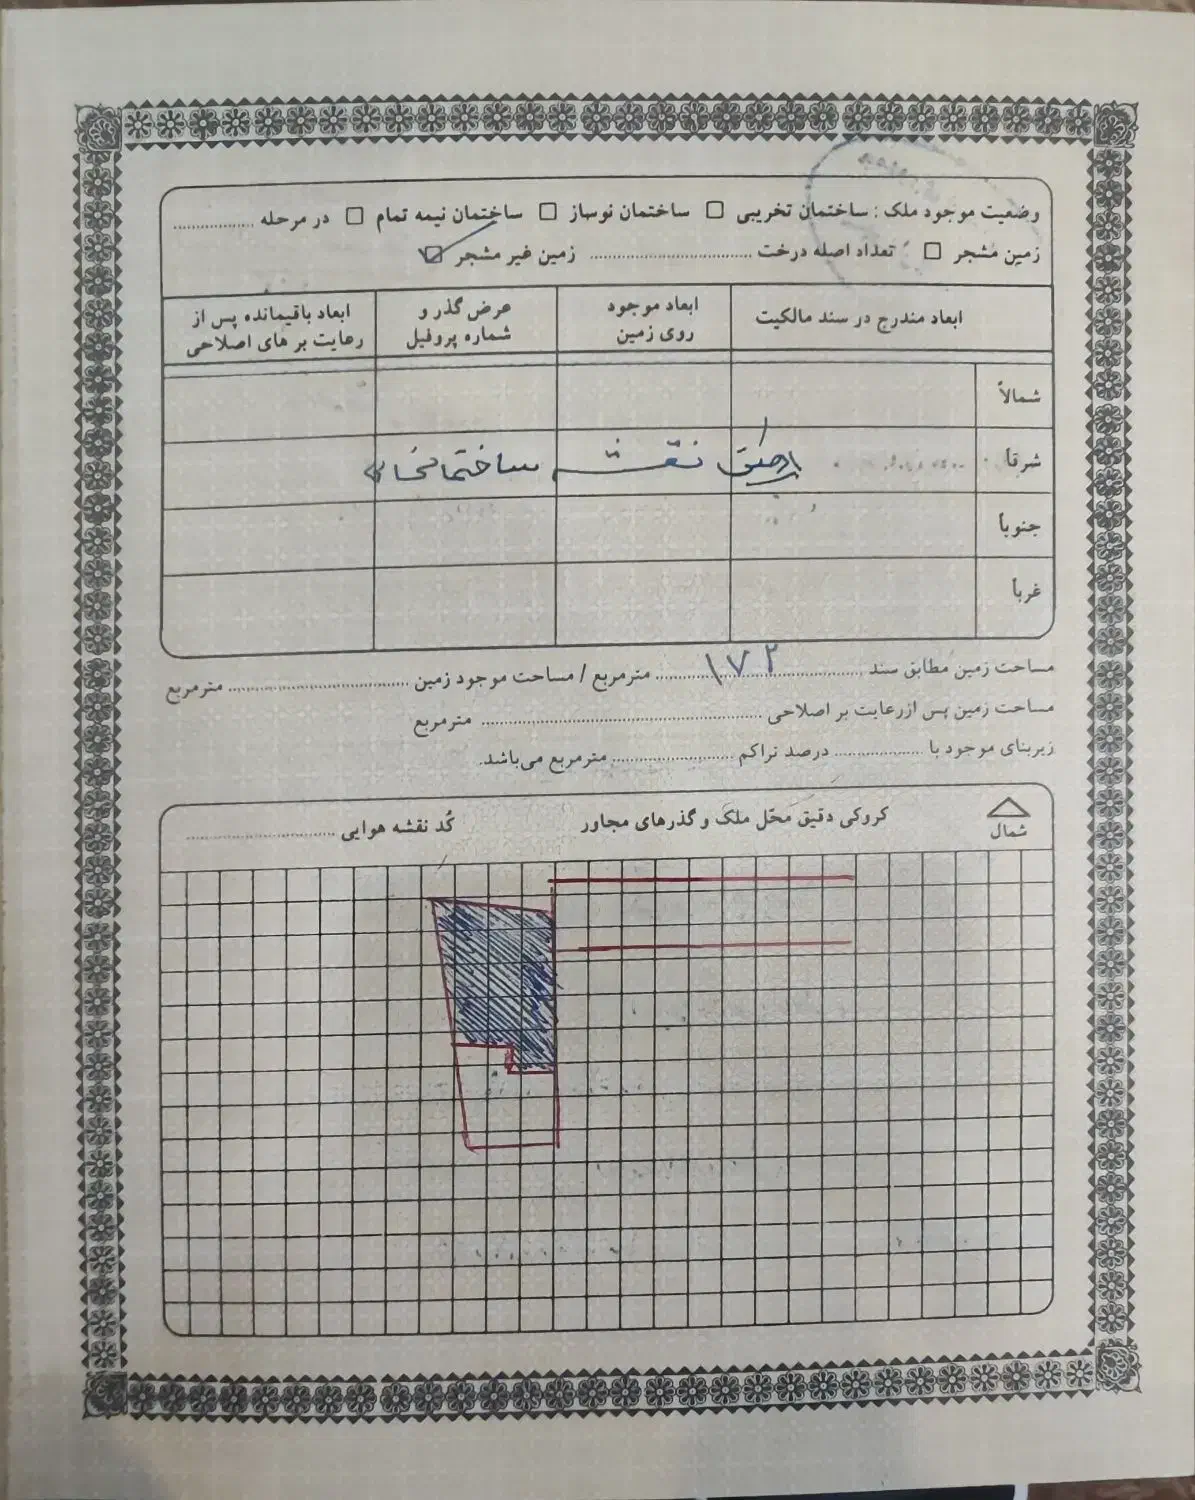 وضعیت موجود ملک : ساختمان تخریبی □ ساختمان نوساز □ ساختمان نیمه تمام □ در مرحله ....................
زمین مشجر □ تعداد اصله درخت .................................... زمین غیر مشجر ☑
ابعاد مندرج در سند مالکیت
ابعاد موجود روی زمین
عرض گذر و شماره پروفیل
ابعاد باقیمانده پس از رعایت بر های اصلاحی
شمالاً
شرقاً
نقشه ساختمانی
جنوباً
غرباً
مساحت زمین مطابق سند ۱۷۲ مترمربع / مساحت موجود زمین .................... مترمربع
مساحت زمین پس ازرعایت بر اصلاحی .................... مترمربع
زیربنای موجود با .................... درصد تراکم .................... مترمربع می‌باشد.
شمال
کروکی دقیق محّل ملک و گذرهای مجاور
کُد نقشه هوایی ....................